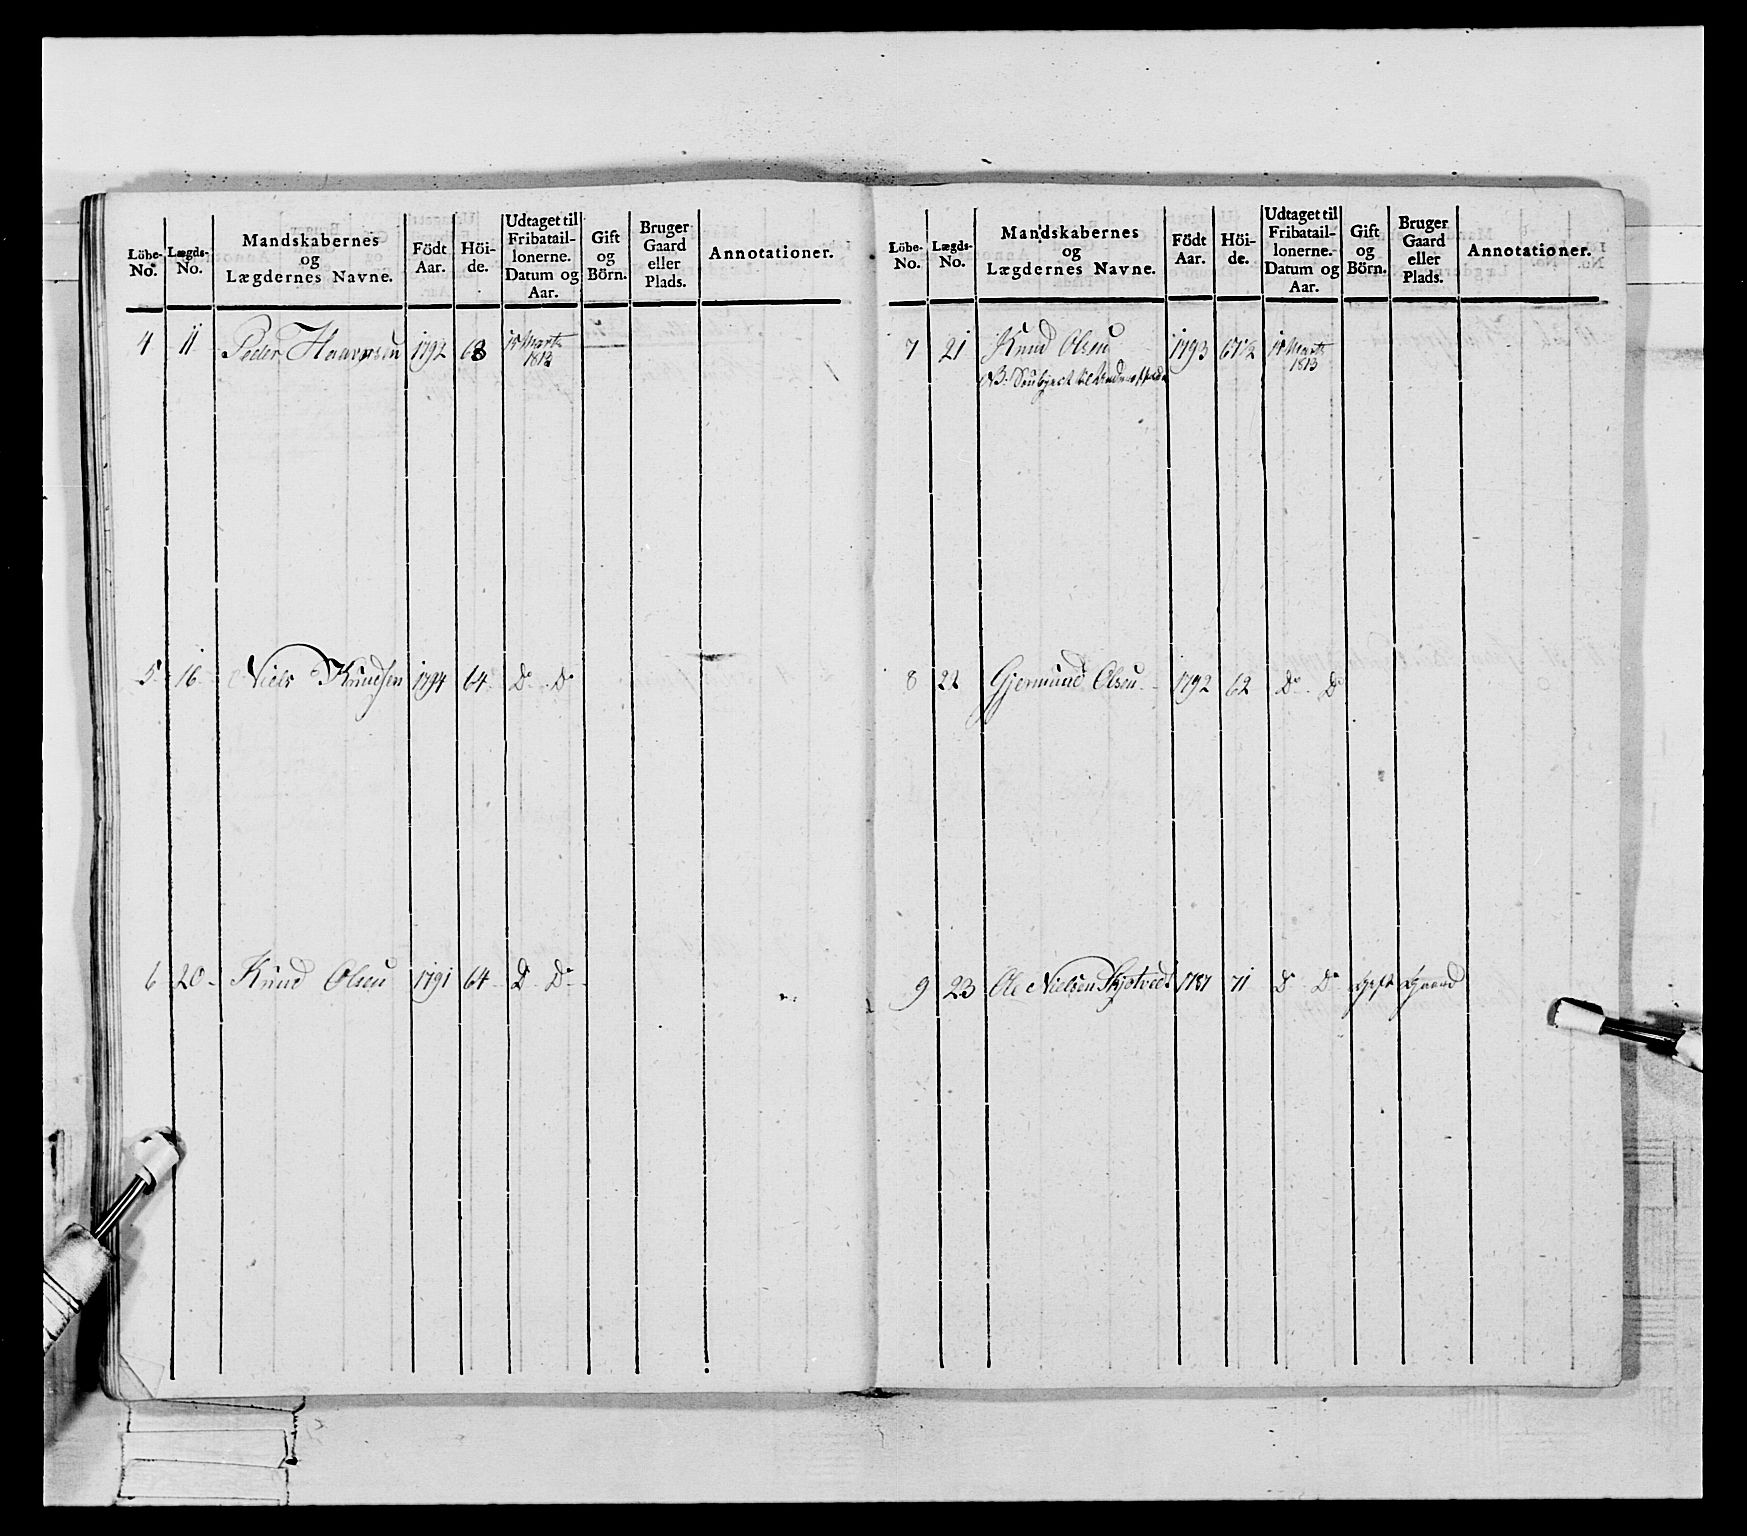 Löbe- No. Lægds- No. Mandskabernes og Lægdernes Navne. Födt Aar. Höi- de. Udtaget til Fribatail- lonerne. Datum og Aar. Gift og Börn. Bruger Gaard eller Plads. Annotationer.
4 11 Peder 1792 68 1ste Marts 1813
5 16 Niels Knudsen 1794 64 Do Do
6 20 Knud Olsen 1791 64 Do Do
Löbe- No. Lægds- No. Mandskabernes og Lægdernes Navne. Födt Aar. Höi- de. Udtaget til Fribatail- lonerne. Datum og Aar. Gift og Börn. Bruger Gaard eller Plads. Annotationer.
7 21 Knud Olsen 1793 67 1/2 1ste Marts 1813
NB. Soubject til
8 22 Gjermund Olsen 1792 62 Do Do
9 23 Ole Nielsen 1787 71 Do Do Gift Gaard